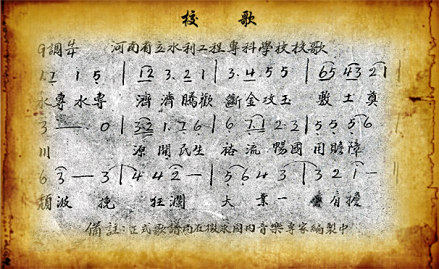 校歌
河南省立水利工程專科學校校歌
1 1 1 5 | 1 2 3. 2 1 | 3. 4. 5 5 | 6 5 4 3 2 1
水專水專 濟濟 歡 斷金攻玉 敷土奠
3 — — 0 | 3 2 1. 7 6 | 6 7 1 2 3 | 5 5 5 6
川 源開民生 裕流暢國用 障
6 3 — 3 | 4 4 2 — | 5 6 4 3 | 3 2 1 —
頹波 挽 狂瀾 大業一 有擔
備註:正式歌譜尚在徵求國內音樂專家編製中